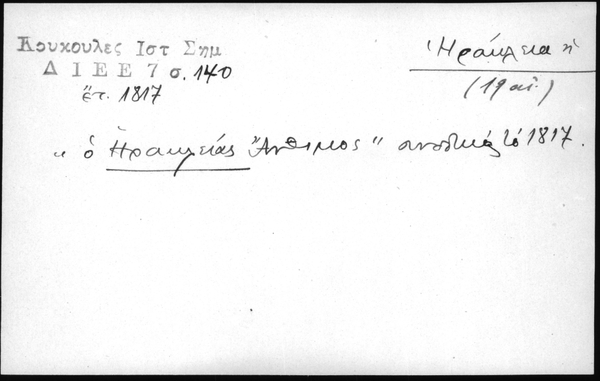 Κουκουλες Ιστ Σημ
Δ Ι Ε Ε 7 σ. 140
ἔτ. 1817
Ἡράκλεια ἡ
(19 αἰ.)
"ὁ Ἡρακλείας Ἄνθιμος" συνοδικός τό 1817.